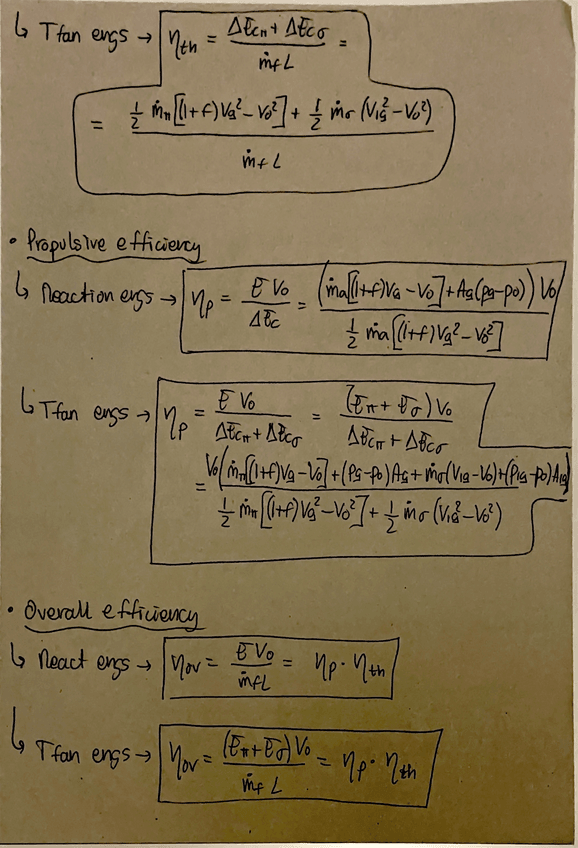 ↳ Tfan engs → η_th = (ΔE_cπ + ΔE_cσ) / (ṁ_f L) =
= (½ ṁ_π [(1+f)V_9² − V_0²] + ½ ṁ_σ (V_19² − V_0²)) / (ṁ_f L)
• Propulsive efficiency
↳ Reaction engs → η_p = E V_0 / ΔE_c = (ṁ_a[(1+f)V_9 − V_0] + A_9(p_9 − p_0)) V_0 / (½ ṁ_a [(1+f)V_9² − V_0²])
↳ Tfan engs → η_p = E V_0 / (ΔE_cπ + ΔE_cσ) = (E_π + E_σ) V_0 / (ΔE_cπ + ΔE_cσ)
= V_0(ṁ_π[(1+f)V_9 − V_0] + (p_9 − p_0)A_9 + ṁ_σ(V_19 − V_0) + (p_19 − p_0)A_19) / (½ ṁ_π [(1+f)V_9² − V_0²] + ½ ṁ_σ (V_19² − V_0²))
• Overall efficiency
↳ React engs → η_ov = E V_0 / (ṁ_f L) = η_p · η_th
↳ Tfan engs → η_ov = (E_π + E_σ) V_0 / (ṁ_f L) = η_p · η_th